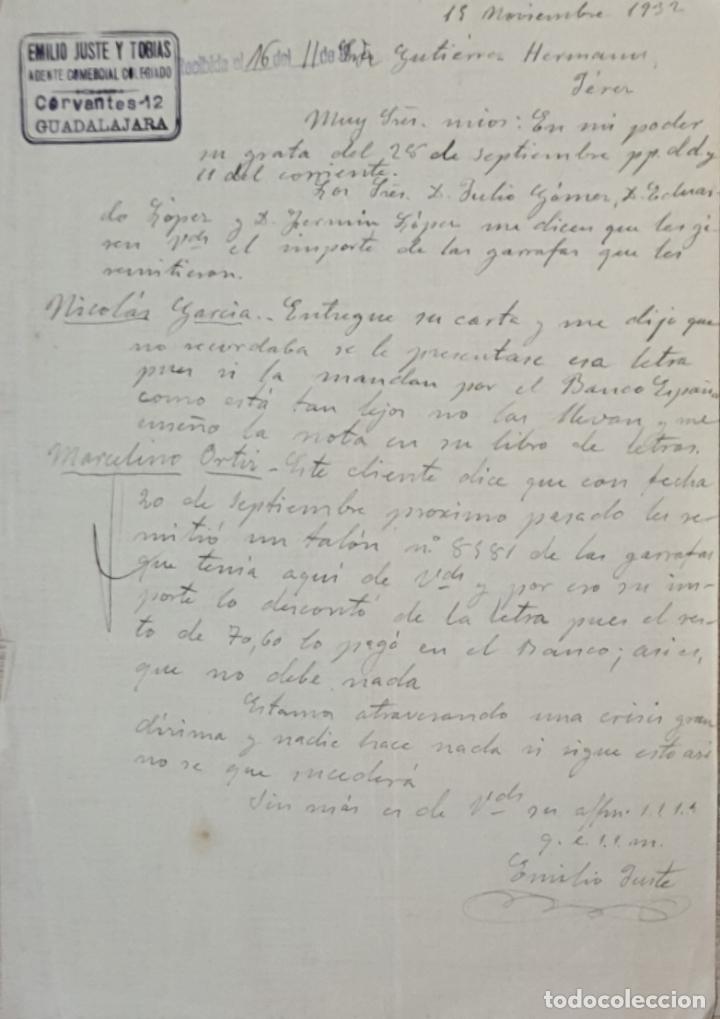 15 Noviembre 1932
EMILIO JUSTE Y TOBIAS
AGENTE COMERCIAL COLEGIADO
Cervantes-12
GUADALAJARA
Recibida el 16 del 11 de
Sres Gutiérrez Hermanos,
Jérez
Muy Sres. mios: En mi poder
su grata del 28 de Septiembre pp. dd y
11 del corriente.
Los Sres. D. Julio Gómez, D. Eduar-
do López y D. Fermin López me dicen que les gi-
ren Vds el importe de las garrafas que les
remitieron.
Nicolás Garcia.- Entregue su carta y me dijo que
no recordaba se le presentase esa letra
pues si la mandan por el Banco España
como está tan lejos no las llevan y me
enseño la nota en su libro de letras.
Marcelino Ortiz - Este cliente dice que con fecha
20 de Septiembre proximo pasado les re-
mitió un talón nº 8981 de las garrafas
que tenia aqui de Vds y por eso su im-
porte lo descontó de la letra pues el res-
to de 70,60 lo pagó en el Banco; asi es,
que no debe nada
Estamos atravesando una crisis gran
disima y nadie hace nada si sigue esto asi
no se que sucederá
Sin más es de Vds su affmo. s.s.s.
q. e. s. m.
Emilio Juste
todocoleccion
todocoleccion.net